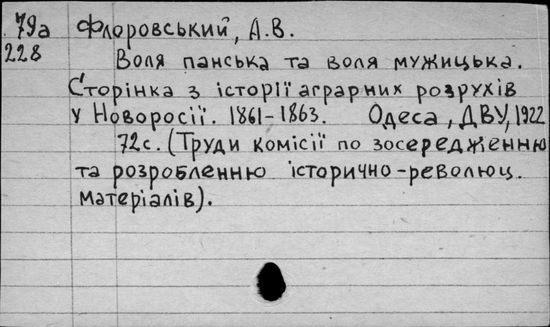 79а Флоровський, А.В.
228 Воля панська та воля мужицька.
Сторінка з історії аграрних розрухів
у Новоросії. 1861-1863. Одеса, ДВУ, 1922
72с. (Труди комісії по зосередженню
та розробленню історично-революц.
матеріалів).